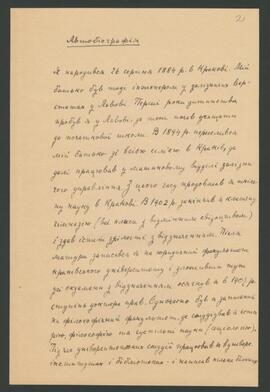 2)
Автобіографія
Я народився 26 серпня 1884 р. в Кракові. Мій
батько був тоді інжінером у залізничних вер-
статах у Львові. Перші роки дитинства
пробув я у Львові, де теж почав учащати
до початкової школи. В 1894 переселився
мій батько зі всією сімєю в Краків, де
далі працював у машиновому відділі залізни-
чого управління. З цього часу продовжав я шкіль-
ну науку в Кракові. В 1902 р. закінчив я клясичну
гімназію (всі кляси з відмінним відзначенням)
і здав іспит зрілости з відзначенням. Після
матури записався я на юридичний факультет
краківського університету і зложивши тут
усі екзамени з відзначенням, осягнув в 1907 р.
ступінь доктора прав. Одночасно був я записаний
на філософічний факультет, де студіював я істо-
рію, філософію та суспільні науки (соціологію).
Підчас університетських студій працював я в універс.
інститутах і бібліотеках і написав кілька